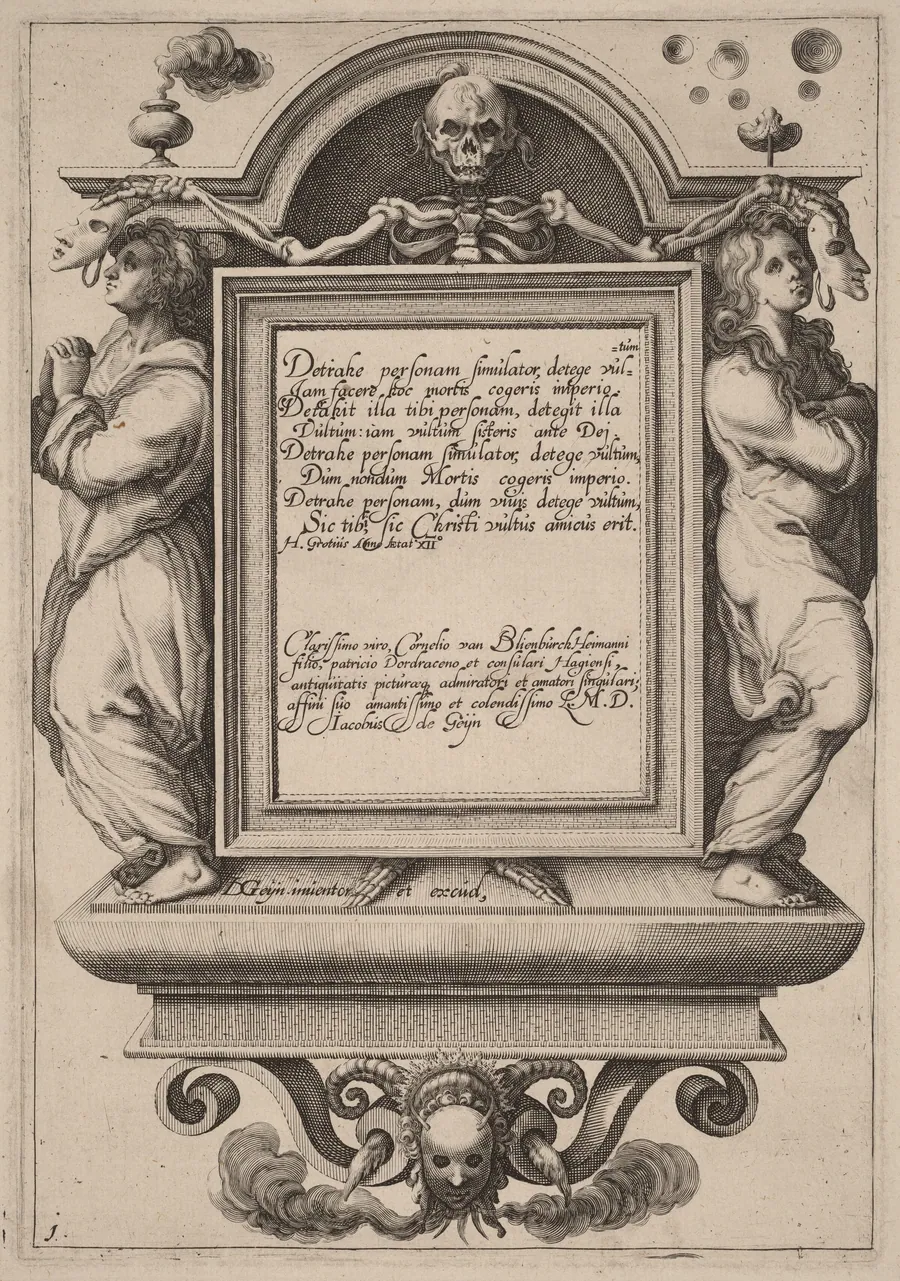 =tum
Detrahe personam simulator, detege vul=
Jam facere hoc mortis cogeris imperio.
Detrahit illa tibi personam, detegit illa
Vultum: iam vultum sisteris ante Dej.
Detrahe personam simulator, detege vultum,
Dum nondum Mortis cogeris imperio.
Detrahe personam, dum viuis detege vultum,
Sic tibi, sic Christi vultus amicus erit.
H. Grotius Anno Aetat XII°
Clarissimo viro, Cornelio van Blienburch Heimanni
filio, patricio Dordraceno et consulari Hagiensi,
antiquitatis picturæq admiratori et amatori singulari;
affini suo amantissimo et colendissimo L.M.D.
Iacobus de Geijn
DGeijn inuentor et excud,
1.